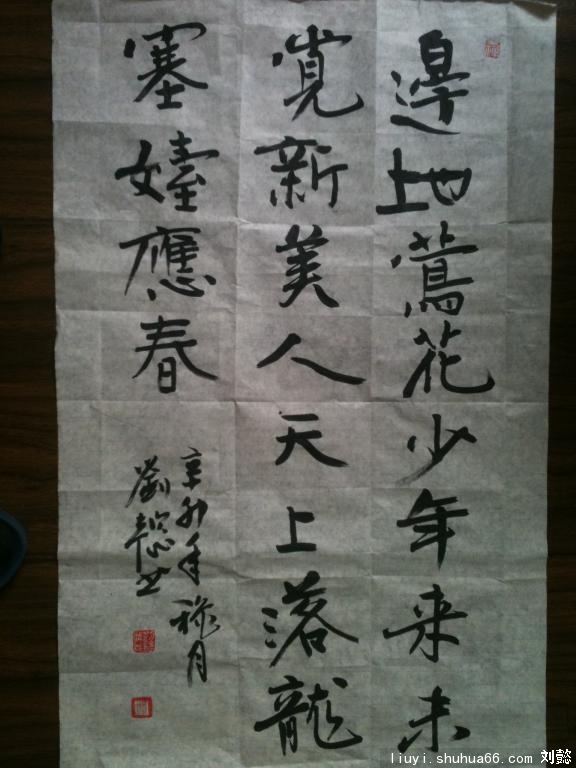 邊地鶯花少年來未
覺新美人天上落龍
塞嬯應春
辛卯年月
劉懿书
liuyi.shuhua66.com 刘懿